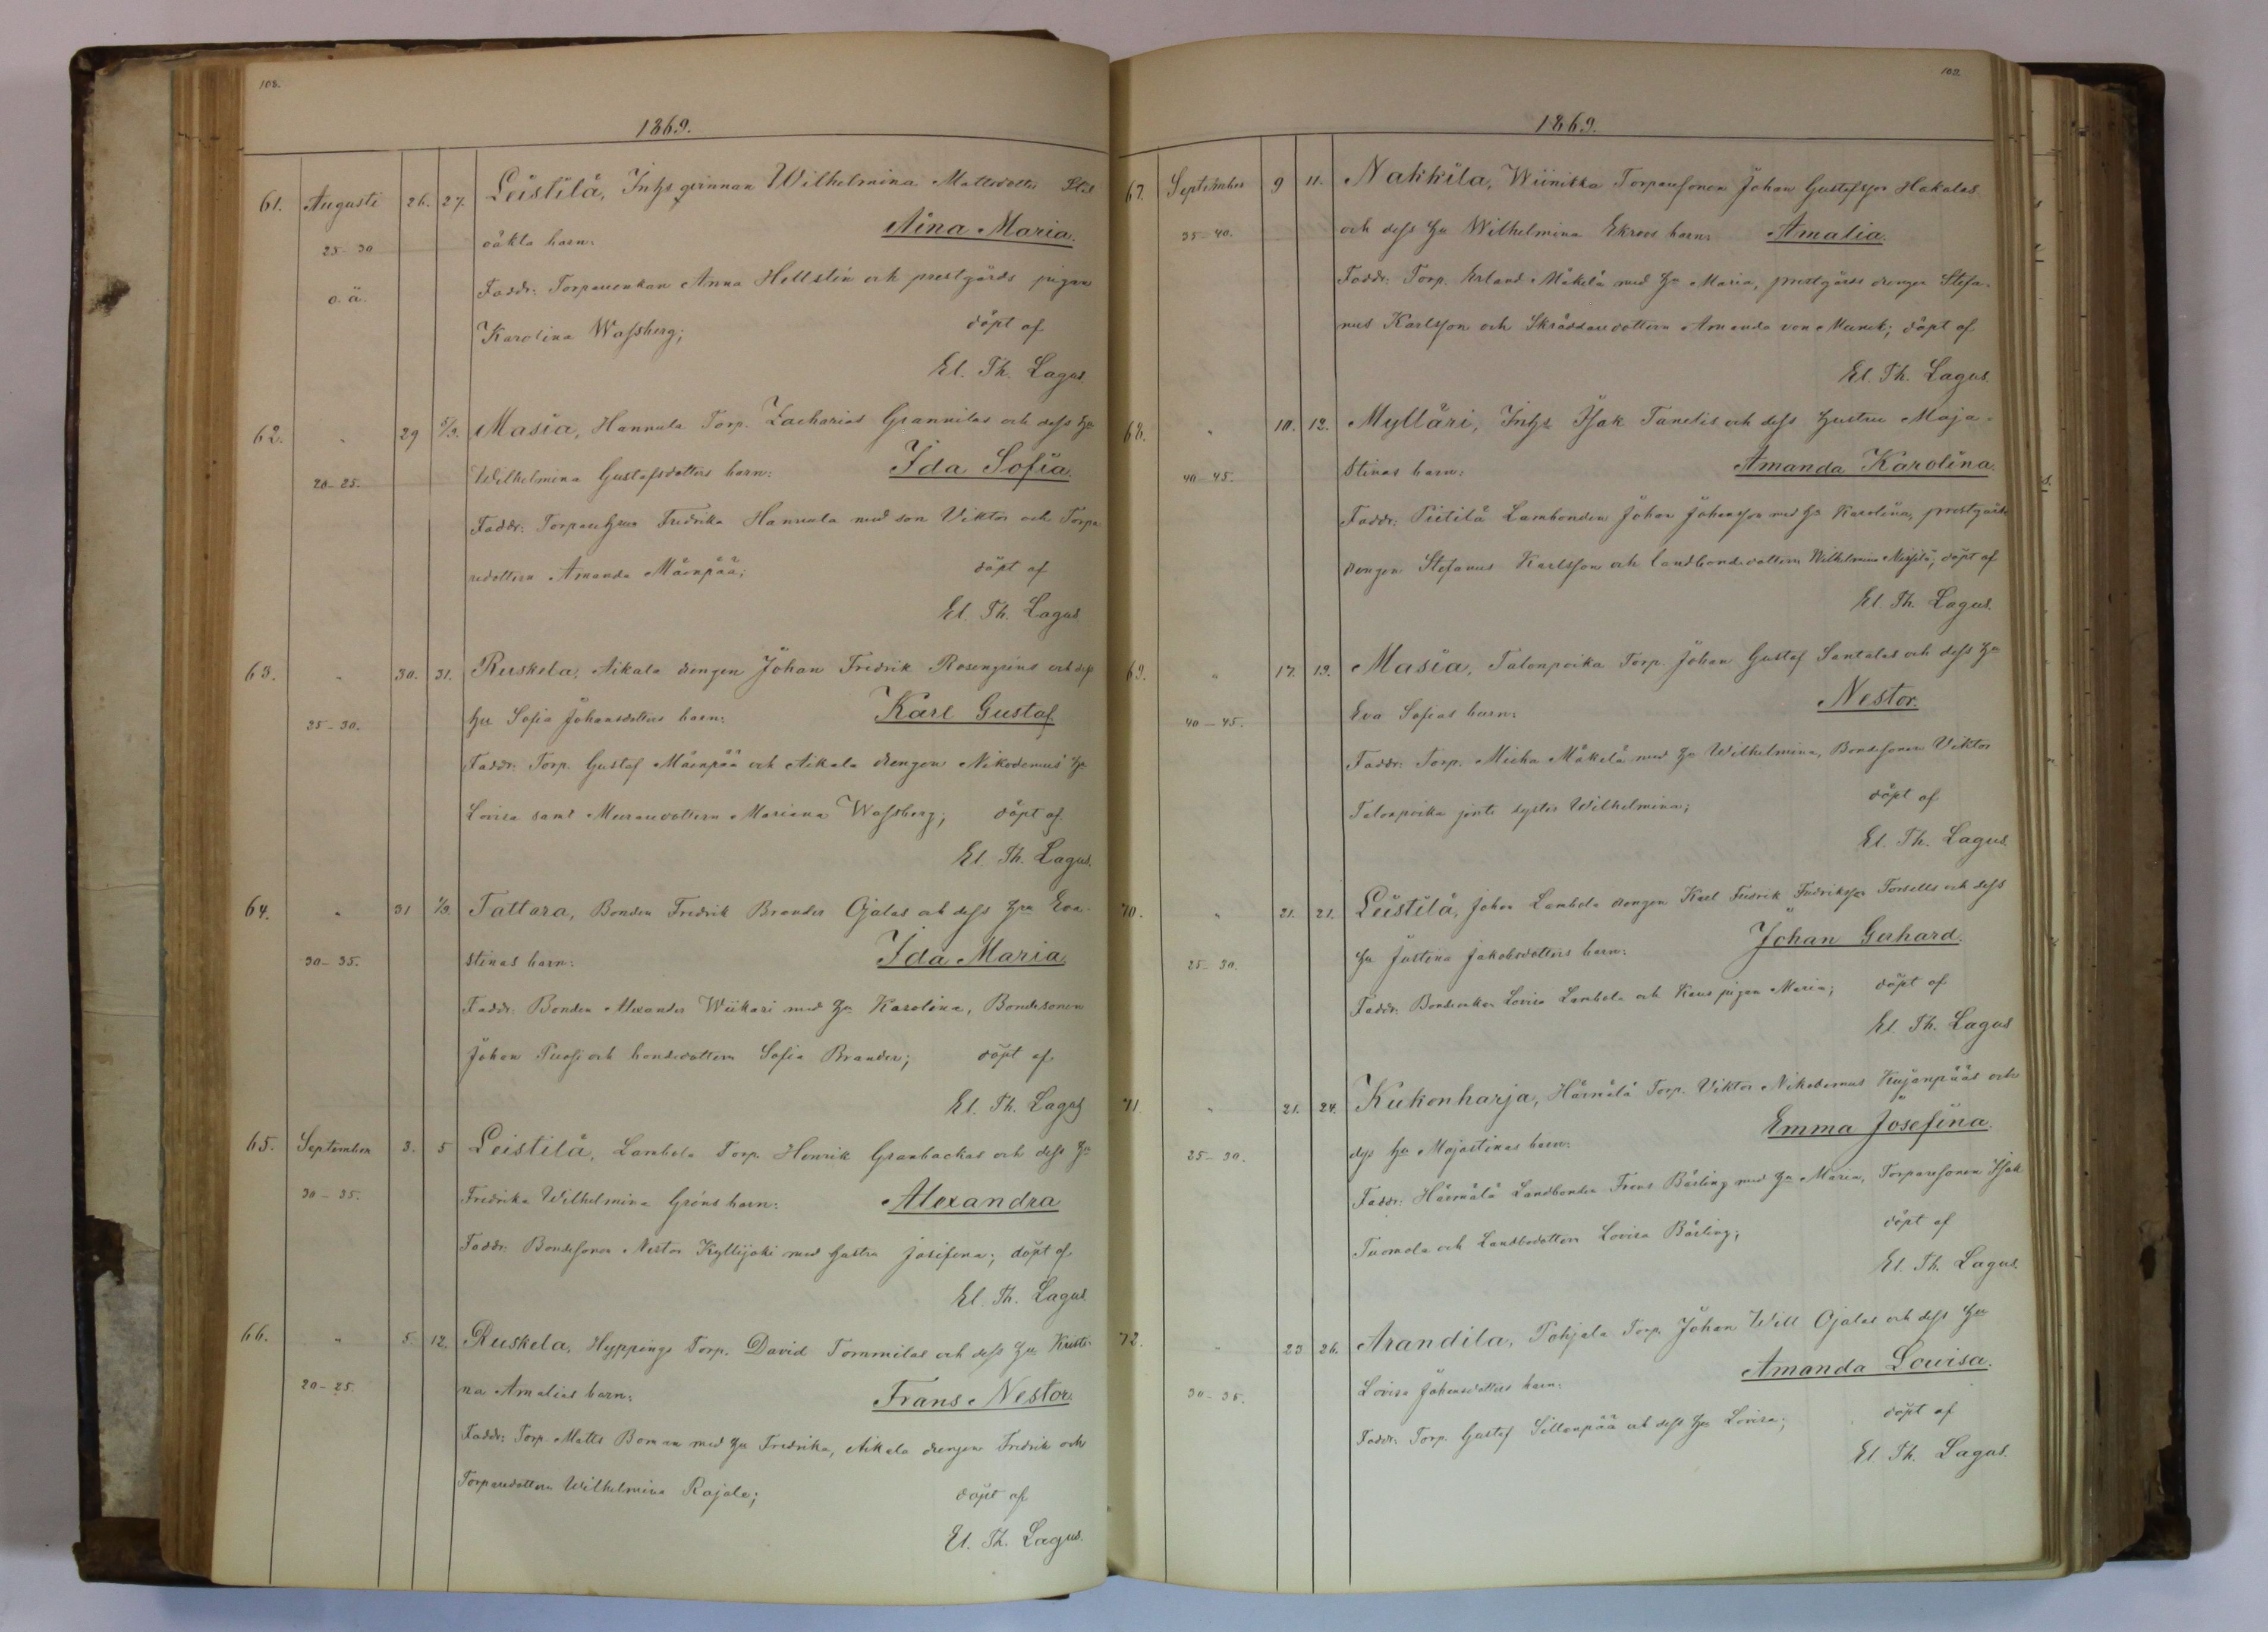 108.
1869.
61. Augusti 26. 27. Leistilä, Inhs qvinnan Wilhelmina Mattsdotter
25-30 oäkta barn: Aina Maria.
o. ä. Faddr: Torpareenkan Anna Hellstén och prestgårds pigan
Karolina Wassberg; döpt af
El. Th. Lagus.
62. " 29 5/9. Masia, Hannula Torp. Zacharias Grannilas och dess hu
20-25. Wilhelmina Gustafsdotters barn: Ida Sofia.
Faddr: Torpareh_u Fredrika Hannula med son Viktor och Torpa
redottern Amanda Mäenpää; döpt af
El. Th. Lagus
63. " 30. 31. Ruskela, Aikala drengen Johan Fredrik Rosengréns och dess
25-30. hu Sofia Johansdotters barn: Karl Gustaf
Faddr: Torp. Gustaf Mäenpää och Aikala drengen Nikodemus hu
Lovisa samt Muraredottern Mariana Wassberg; döpt af
El. Th. Lagus.
64. " 31 1/9. Tattara, Bonden Fredrik Brander Ojalas och dess hu Eva
30-35. stinas barn: Ida Maria
Faddr: Bonden Alexander Wiikari med hu Karolina, Bondesonen
Johan och bondedottern Sofia Brander; döpt af
El. Th. Lagus
65. September 3. 5 Leistilä, Lambola Torp. Henrik Granbackas och dess hu
30-35. Fredrika Wilhelmina Gröns barn: Alexandra
Faddr: Bondesonen Nestor Kyllijoki med hustru Josefina; döpt af
El. Th. Lagus
66. " 5. 12. Ruskela, Hyppings Torp. David Tommilas och dess hu Kristi-
20-25. na Amalias barn: Frans Nestor.
Faddr: Torp. Matts Boman med hu Fredrika, Aikala drengen Fredrik och
Torparedottern Wilhelmina Rajala; döpt af
El. Th. Lagus.
109.
1869.
67. September 9 11. Nakkila, Wiinikka Torparesonen Johan Gustafsson Hakalas
35-40. och dess hu Wilhelmina Ekroos barn: Amalia.
Faddr: Torp. Erland Mäkelä med hu Maria, prestgårds drengen Stefa-
nus Karlsson och Skräddaredottern Amanda von Munck; döpt af
El. Th. Lagus.
68. " 10. 12. Mylläri, Inhs Isak Tanelis och dess hustru Maja-
40-45. stinas barn: Amanda Karolina.
Faddr: Piitilä Lambonden Johan Johansson med hu Karolina, prestgårds
drengen Stefanus Karlsson och landbondedottern Wilhelmina döpt af
El. Th. Lagus.
69. " 17. 19. Masia, Talonpoika Torp. Johan Gustaf Santalas och dess hu
40-45. Eva Sofias barn: Nestor.
Faddr: Torp. Micka Mäkelä med hu Wilhelmina, Bondesonen Viktor
Talonpoika jemte syster Wilhelmina; döpt af
El. Th. Lagus
70. " 21. 21. Leistilä, Johan Lambola drengen Karl Fredrik Fredriksson Forsells och dess
25-30. hu Justina Jakobsdotters barn: Johan Gerhard.
Faddr: Bondeenkan Lovisa Lambola och Kaus pigan Maria; döpt af
El. Th. Lagus
71. " 21. 24. Kukonharja, Härmälä Torp. Viktor Nikodemus Kujanpääs och
25-30. dess hu Majastinas barn: Emma Josefina.
Faddr: Härmälä Landbonden Frans Bärling med hu Maria, Torparesonen Isak
Tuomola och Landbodottern Lovisa Bärling; döpt af
El. Th. Lagus.
72. " 23 26. Arandila, Pohjala Torp. Johan Will Ojalas och dess hu
30-35. Lovisa Johansdotters barn: Amanda Lovisa.
Faddr: Torp. Gustaf Sillanpää och dess hu Lovisa; döpt af
El. Th. Lagus.